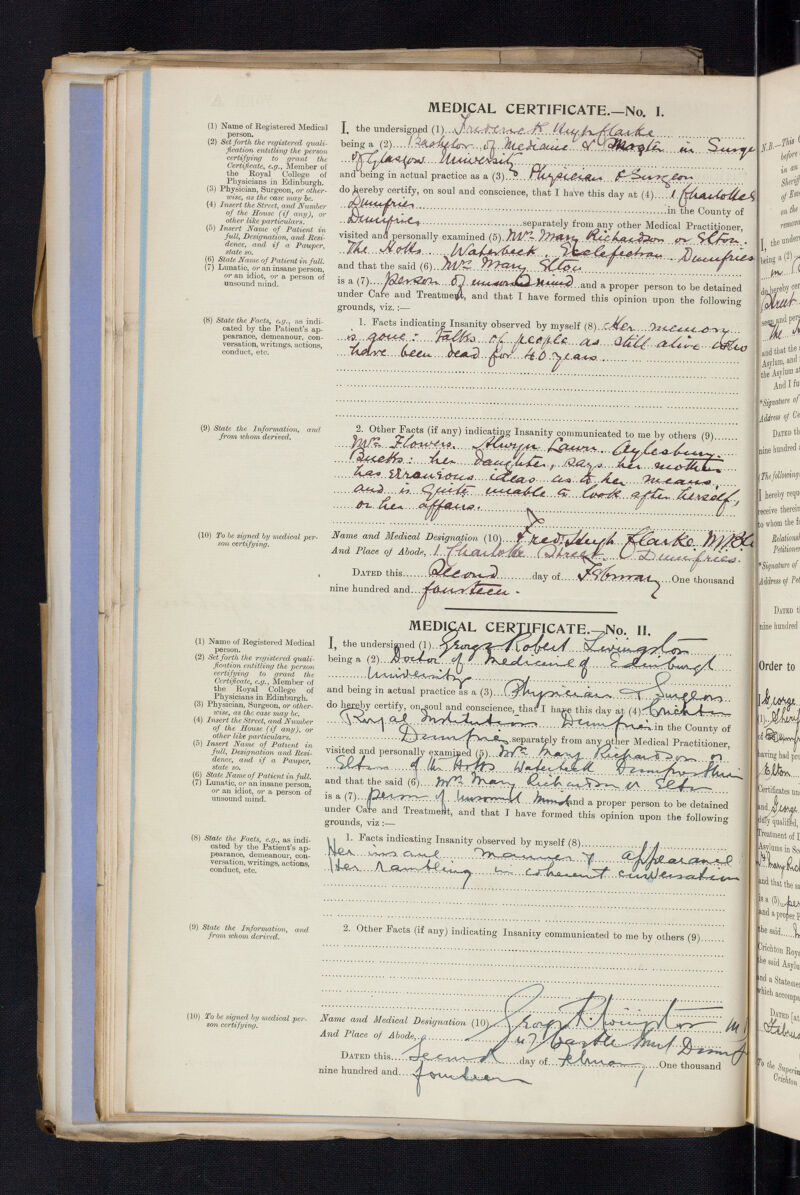 MEDICAL CERTIFICATE.—No. I.
(1) Name of Registered Medical person.
(2) Set forth the registered qualification entitling the person certifying to grant the Certificate, e.g., Member of the Royal College of Physicians in Edinburgh.
(3) Physician, Surgeon, or otherwise, as the case may be.
(4) Insert the Street, and Number of the House (if any), or other like particulars.
(5) Insert Name of Patient in full, Designation, and Residence, and if a Pauper, state so.
(6) State Name of Patient in full.
(7) Lunatic, or an insane person, or an idiot, or a person of unsound mind.
I, the undersigned (1) Frederick Hugh Clarke
being a (2) Bachelor of Medicine & Master in Surge
of Glasgow University
and being in actual practice as a (3) Physician & Surgeon
do hereby certify, on soul and conscience, that I have this day at (4) 1 Charlotte S
Dumfries in the County of
Dumfries separately from any other Medical Practitioner,
visited and personally examined (5) Mrs Mary Richardson or Elton.
The Hotts Waterbeck Ecclefechan Dumfries
and that the said (6) Mrs Mary Elton
is a (7) person of unsound mind and a proper person to be detained
under Care and Treatment, and that I have formed this opinion upon the following
grounds, viz.:—
(8) State the Facts, e.g., as indicated by the Patient's appearance, demeanour, conversation, writings, actions, conduct, etc.
1. Facts indicating Insanity observed by myself (8) Her memory
is gone: talks of people as still alive who
have been dead for 40 years.
(9) State the Information, and from whom derived.
2. Other Facts (if any) indicating Insanity communicated to me by others (9)
Mrs Flowers. Alwyn Lawn Aylesbury.
Bucks: her daughter, says her mother
has erroneous ideas as to her means,
and is quite unable to look after herself,
or her affairs.
(10) To be signed by medical person certifying.
Name and Medical Designation (10) Fred. Hugh Clarke. M.B.C
And Place of Abode, 1 Charlotte Street. Dumfries.
DATED this Second day of February One thousand
nine hundred and fourteen.
MEDICAL CERTIFICATE.—No. II.
(1) Name of Registered Medical person.
(2) Set forth the registered qualification entitling the person certifying to grant the Certificate, e.g., Member of the Royal College of Physicians in Edinburgh.
(3) Physician, Surgeon, or otherwise, as the case may be.
(4) Insert the Street, and Number of the House (if any), or other like particulars.
(5) Insert Name of Patient in full, Designation, and Residence, and if a Pauper, state so.
(6) State Name of Patient in full.
(7) Lunatic, or an insane person, or an idiot, or a person of unsound mind.
I, the undersigned (1) George Robert Livingston
being a (2) Doctor of Medicine of Edinburgh
University
and being in actual practice as a (3) Physician & Surgeon
do hereby certify, on soul and conscience, that I have this day at (4) Crichton
Royal Institution Dumfries in the County of
Dumfries separately from any other Medical Practitioner,
visited and personally examined (5) Mrs Mary Richardson or
Elton of the Hotts Waterbeck Dumfriesshire
and that the said (6) Mrs Mary Richardson or Elton
is a (7) person of unsound mind and a proper person to be detained
under Care and Treatment, and that I have formed this opinion upon the following
grounds, viz:—
(8) State the Facts, e.g., as indicated by the Patient's appearance, demeanour, conversation, writings, actions, conduct, etc.
1. Facts indicating Insanity observed by myself (8)
Her insane manner & appearance
Her rambling incoherent conversation
(9) State the Information, and from whom derived.
2. Other Facts (if any) indicating Insanity communicated to me by others (9)
(10) To be signed by medical person certifying.
Name and Medical Designation (10) George R. Livingston M
And Place of Abode, 47 Castle Street Dumf
DATED this Second day of February One thousand
nine hundred and fourteen